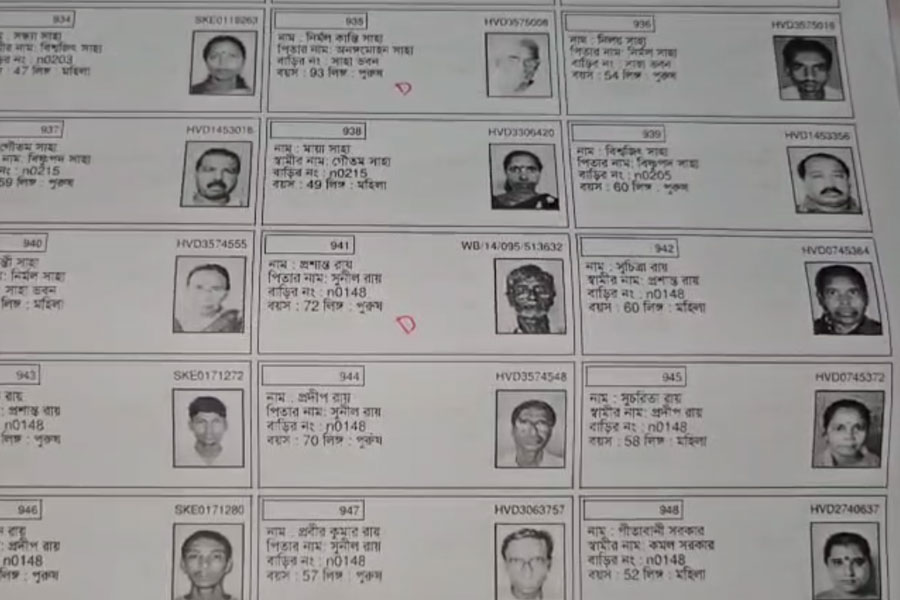 934 SKE0119263
: সন্ধ্যা সাহা
নাম: বিশ্বজিৎ সাহা
নং : n0203
: 47 লিঙ্গ : মহিলা
935 HVD3575008
নাম : নির্মল কান্তি সাহা
পিতার নাম: অনঙ্গমোহন সাহা
বাড়ির নং : সাহা ভবন
বয়স : 93 লিঙ্গ : পুরুষ
D
936 HVD3575016
নাম : নিলয় সাহা
পিতার নাম: নির্মল সাহা
বাড়ির নং : সাহা ভবন
বয়স : 54 লিঙ্গ : পুরুষ
937 HVD1453018
গৌতম সাহা
নাম: বিষ্ণুপদ সাহা
নং : n0215
59 লিঙ্গ : পুরুষ
938 HVD3306420
নাম : মায়া সাহা
স্বামীর নাম: গৌতম সাহা
বাড়ির নং : n0215
বয়স : 49 লিঙ্গ : মহিলা
939 HVD1453356
নাম : বিশ্বজিৎ সাহা
পিতার নাম: বিষ্ণুপদ সাহা
বাড়ির নং : n0205
বয়স : 60 লিঙ্গ : পুরুষ
940 HVD3574555
সাহা
: নির্মল সাহা
: সাহা ভবন
লিঙ্গ : মহিলা
941 WB/14/095/513632
নাম : প্রশান্ত রায়
পিতার নাম: সুনীল রায়
বাড়ির নং : n0148
বয়স : 72 লিঙ্গ : পুরুষ
D
942 HVD0745364
নাম : সুচিত্রা রায়
স্বামীর নাম: প্রশান্ত রায়
বাড়ির নং : n0148
বয়স : 60 লিঙ্গ : মহিলা
943 SKE0171272
রায়
: প্রশান্ত রায়
n0148
লিঙ্গ : পুরুষ
944 HVD3574548
নাম : প্রদীপ রায়
পিতার নাম: সুনীল রায়
বাড়ির নং : n0148
বয়স : 70 লিঙ্গ : পুরুষ
945 HVD0745372
নাম : সুচরিতা রায়
স্বামীর নাম: প্রদীপ রায়
বাড়ির নং : n0148
বয়স : 58 লিঙ্গ : মহিলা
946 SKE0171280
রায়
: প্রদীপ রায়
n0148
লিঙ্গ : পুরুষ
947 HVD3063757
নাম : প্রবীর কুমার রায়
পিতার নাম: সুনীল রায়
বাড়ির নং : n0148
বয়স : 57 লিঙ্গ : পুরুষ
948 HVD2740637
নাম : গীতাবানী সরকার
স্বামীর নাম: কমল সরকার
বাড়ির নং : n0148
বয়স : 52 লিঙ্গ : মহিলা